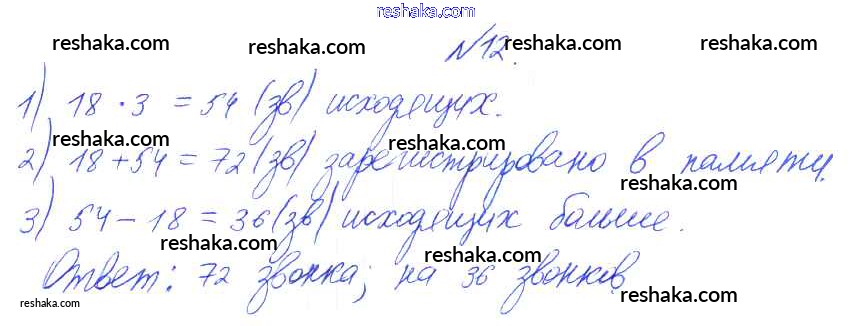 reshaka.com
reshaka.com reshaka.com reshaka.com
N12.
1) 18 · 3 = 54 (зв) исходящих.
reshaka.com reshaka.com
2) 18 + 54 = 72 (зв) зарегистрировано в памяти.
reshaka.com reshaka.com
3) 54 - 18 = 36 (зв) исходящих больше.
reshaka.com reshaka.com
Ответ: 72 звонка; на 36 звонков
reshaka.com reshaka.com reshaka.com